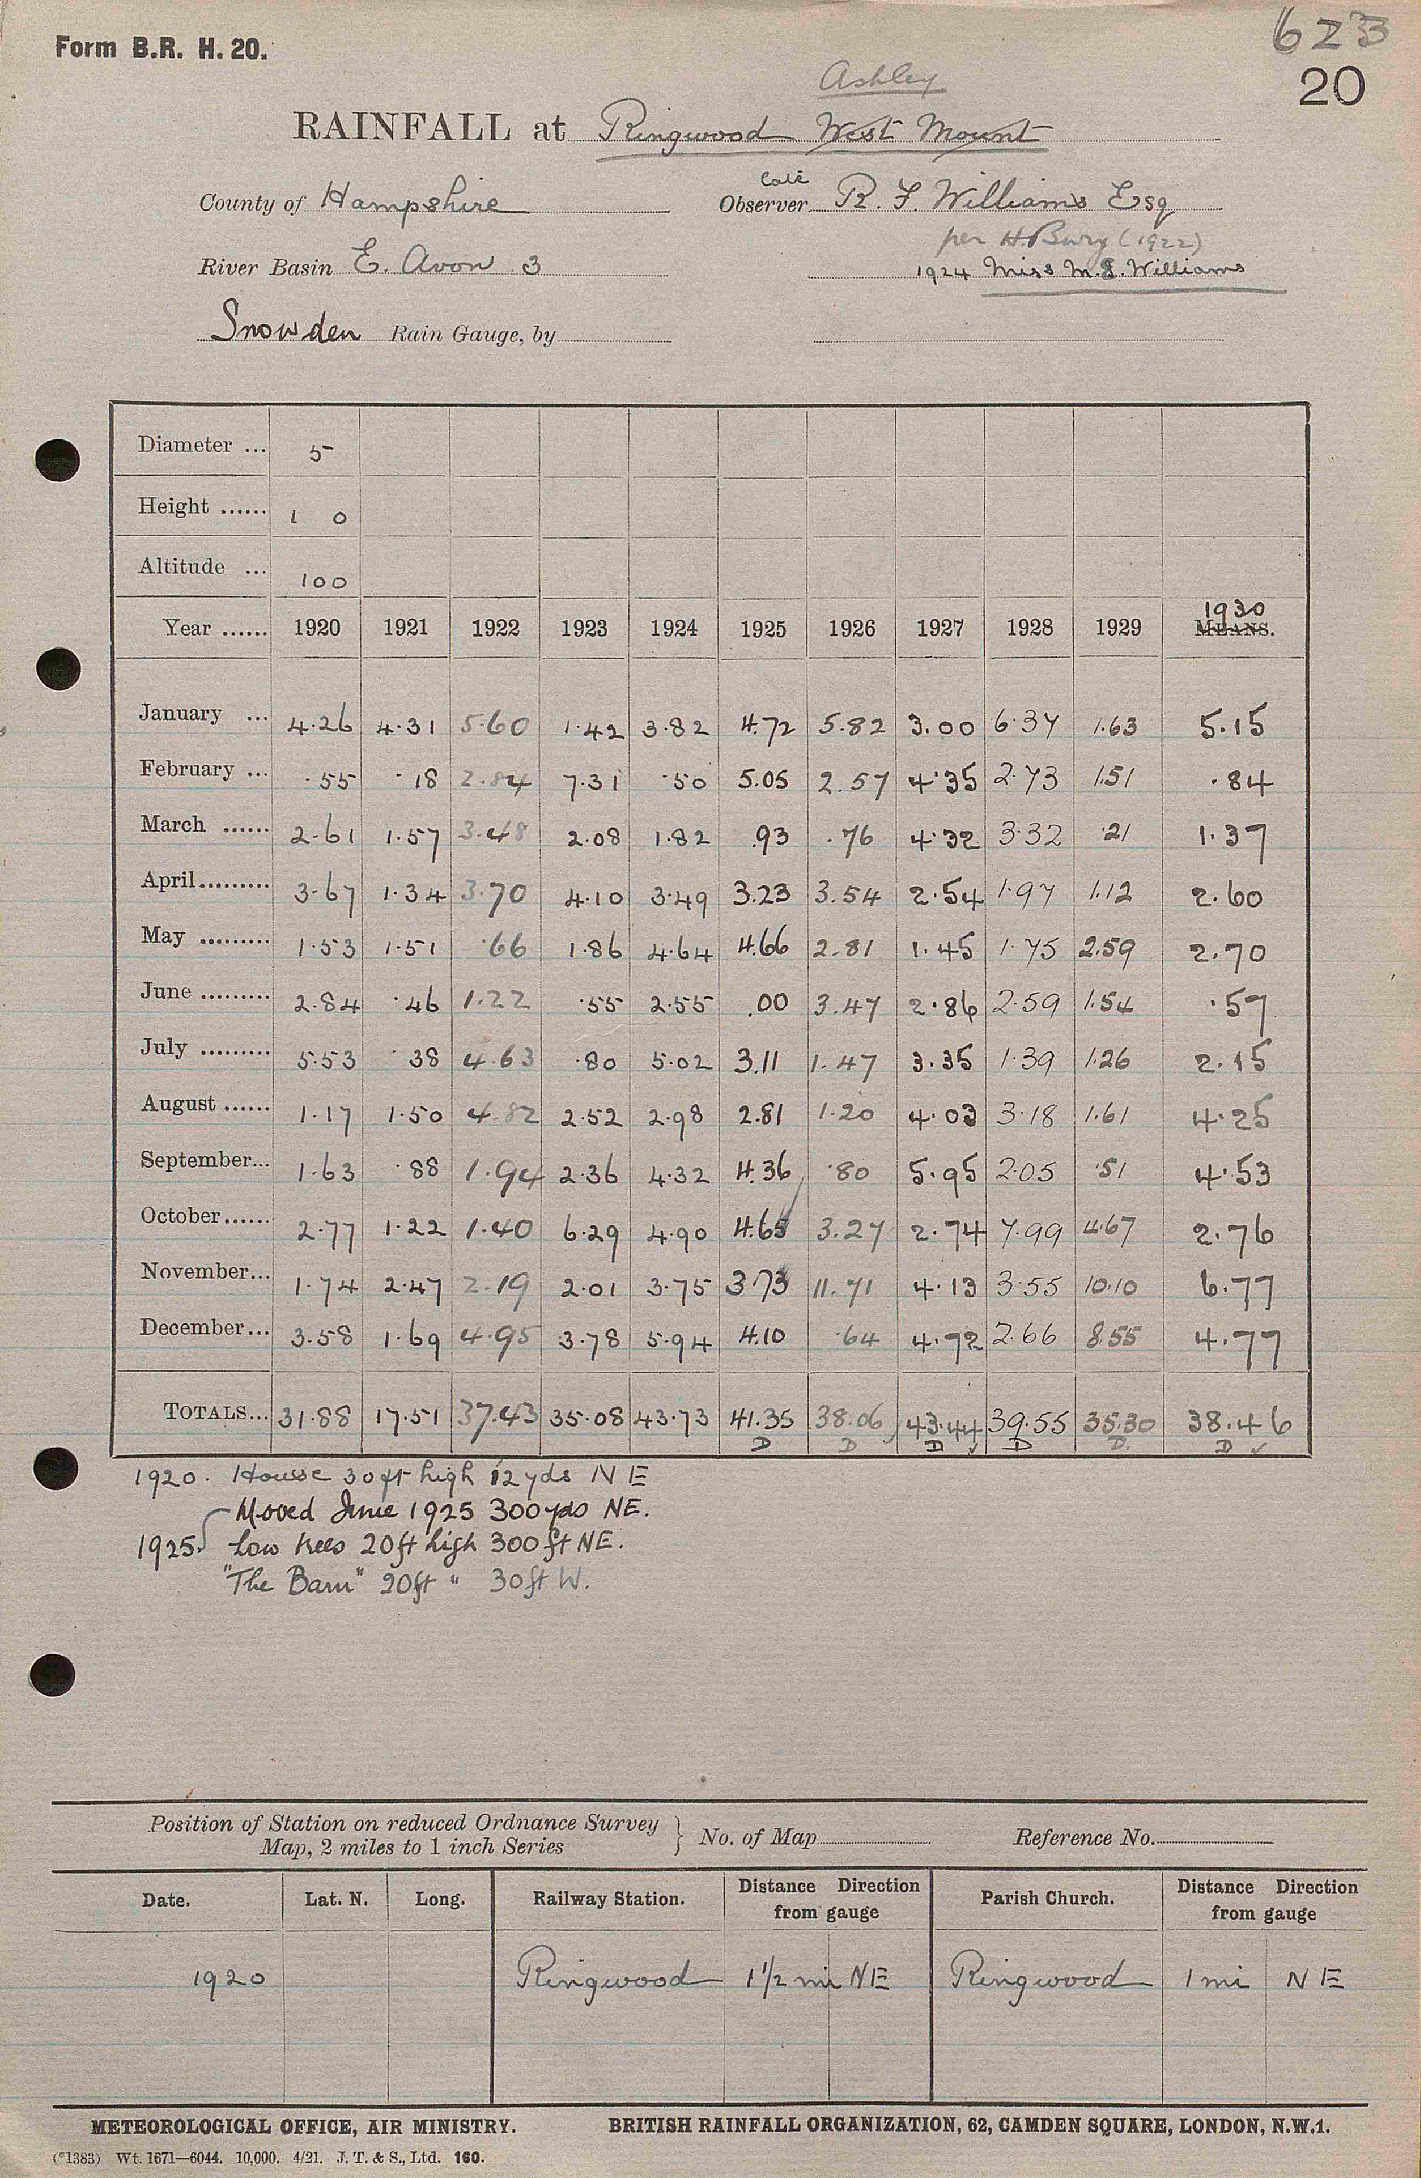 Form B.R. H. 20.
623
20
Ashley
RAINFALL at Ringwood West Mount
County of Hampshire
Observer R. F. Williams Esq
per H. Bury (1922)
River Basin E. Avon 3
1924 Miss M. S. Williams
Snowden Rain Gauge, by
Diameter ... 5
Height ...... 1 0
Altitude ... 100
1930
Year ...... 1920 1921 1922 1923 1924 1925 1926 1927 1928 1929 MEANS.
January ... 4.26 4.31 5.60 1.42 3.82 4.72 5.82 3.00 6.37 1.63 5.15
February ... .55 .18 2.84 7.31 .50 5.05 2.57 4.35 2.73 1.51 .84
March ...... 2.61 1.57 3.48 2.08 1.82 .93 .76 4.32 3.32 .21 1.37
April......... 3.67 1.34 3.70 4.10 3.49 3.23 3.54 2.54 1.97 1.12 2.60
May ......... 1.53 1.51 .66 1.86 4.64 4.66 2.81 1.45 1.75 2.59 2.70
June ......... 2.84 .46 1.22 .55 2.55 .00 3.47 2.86 2.59 1.54 .57
July ......... 5.53 .38 4.63 .80 5.02 3.11 1.47 3.35 1.39 1.26 2.15
August ...... 1.17 1.50 4.82 2.52 2.98 2.81 1.20 4.03 3.18 1.61 4.25
September... 1.63 .88 1.94 2.36 4.32 4.36 .80 5.95 2.05 .51 4.53
October...... 2.77 1.22 1.40 6.29 4.90 4.65 3.27 2.74 7.99 4.67 2.76
November... 1.74 2.47 2.19 2.01 3.75 3.73 11.71 4.13 3.55 10.10 6.77
December... 3.58 1.69 4.95 3.78 5.94 4.10 .64 4.72 2.66 8.55 4.77
TOTALS... 31.88 17.51 37.43 35.08 43.73 41.35 38.06 43.44 39.55 35.30 38.46
D D D ✓ D D. D ✓
1920. House 30ft high 12 yds NE
Moved June 1925 300 yds NE.
1925. Low trees 20ft high 300 ft NE.
"The Barn" 20ft " 30ft W.
Position of Station on reduced Ordnance Survey
Map, 2 miles to 1 inch Series
No. of Map
Reference No.
Date. Lat. N. Long. Railway Station. Distance Direction from gauge Parish Church. Distance Direction from gauge
1920 Ringwood 1 1/2 mi NE Ringwood 1 mi NE
METEOROLOGICAL OFFICE, AIR MINISTRY. BRITISH RAINFALL ORGANIZATION, 62, CAMDEN SQUARE, LONDON, N.W.1.
(*1383) Wt. 1671—6044. 10,000. 4/21. J. T. & S., Ltd. 160.